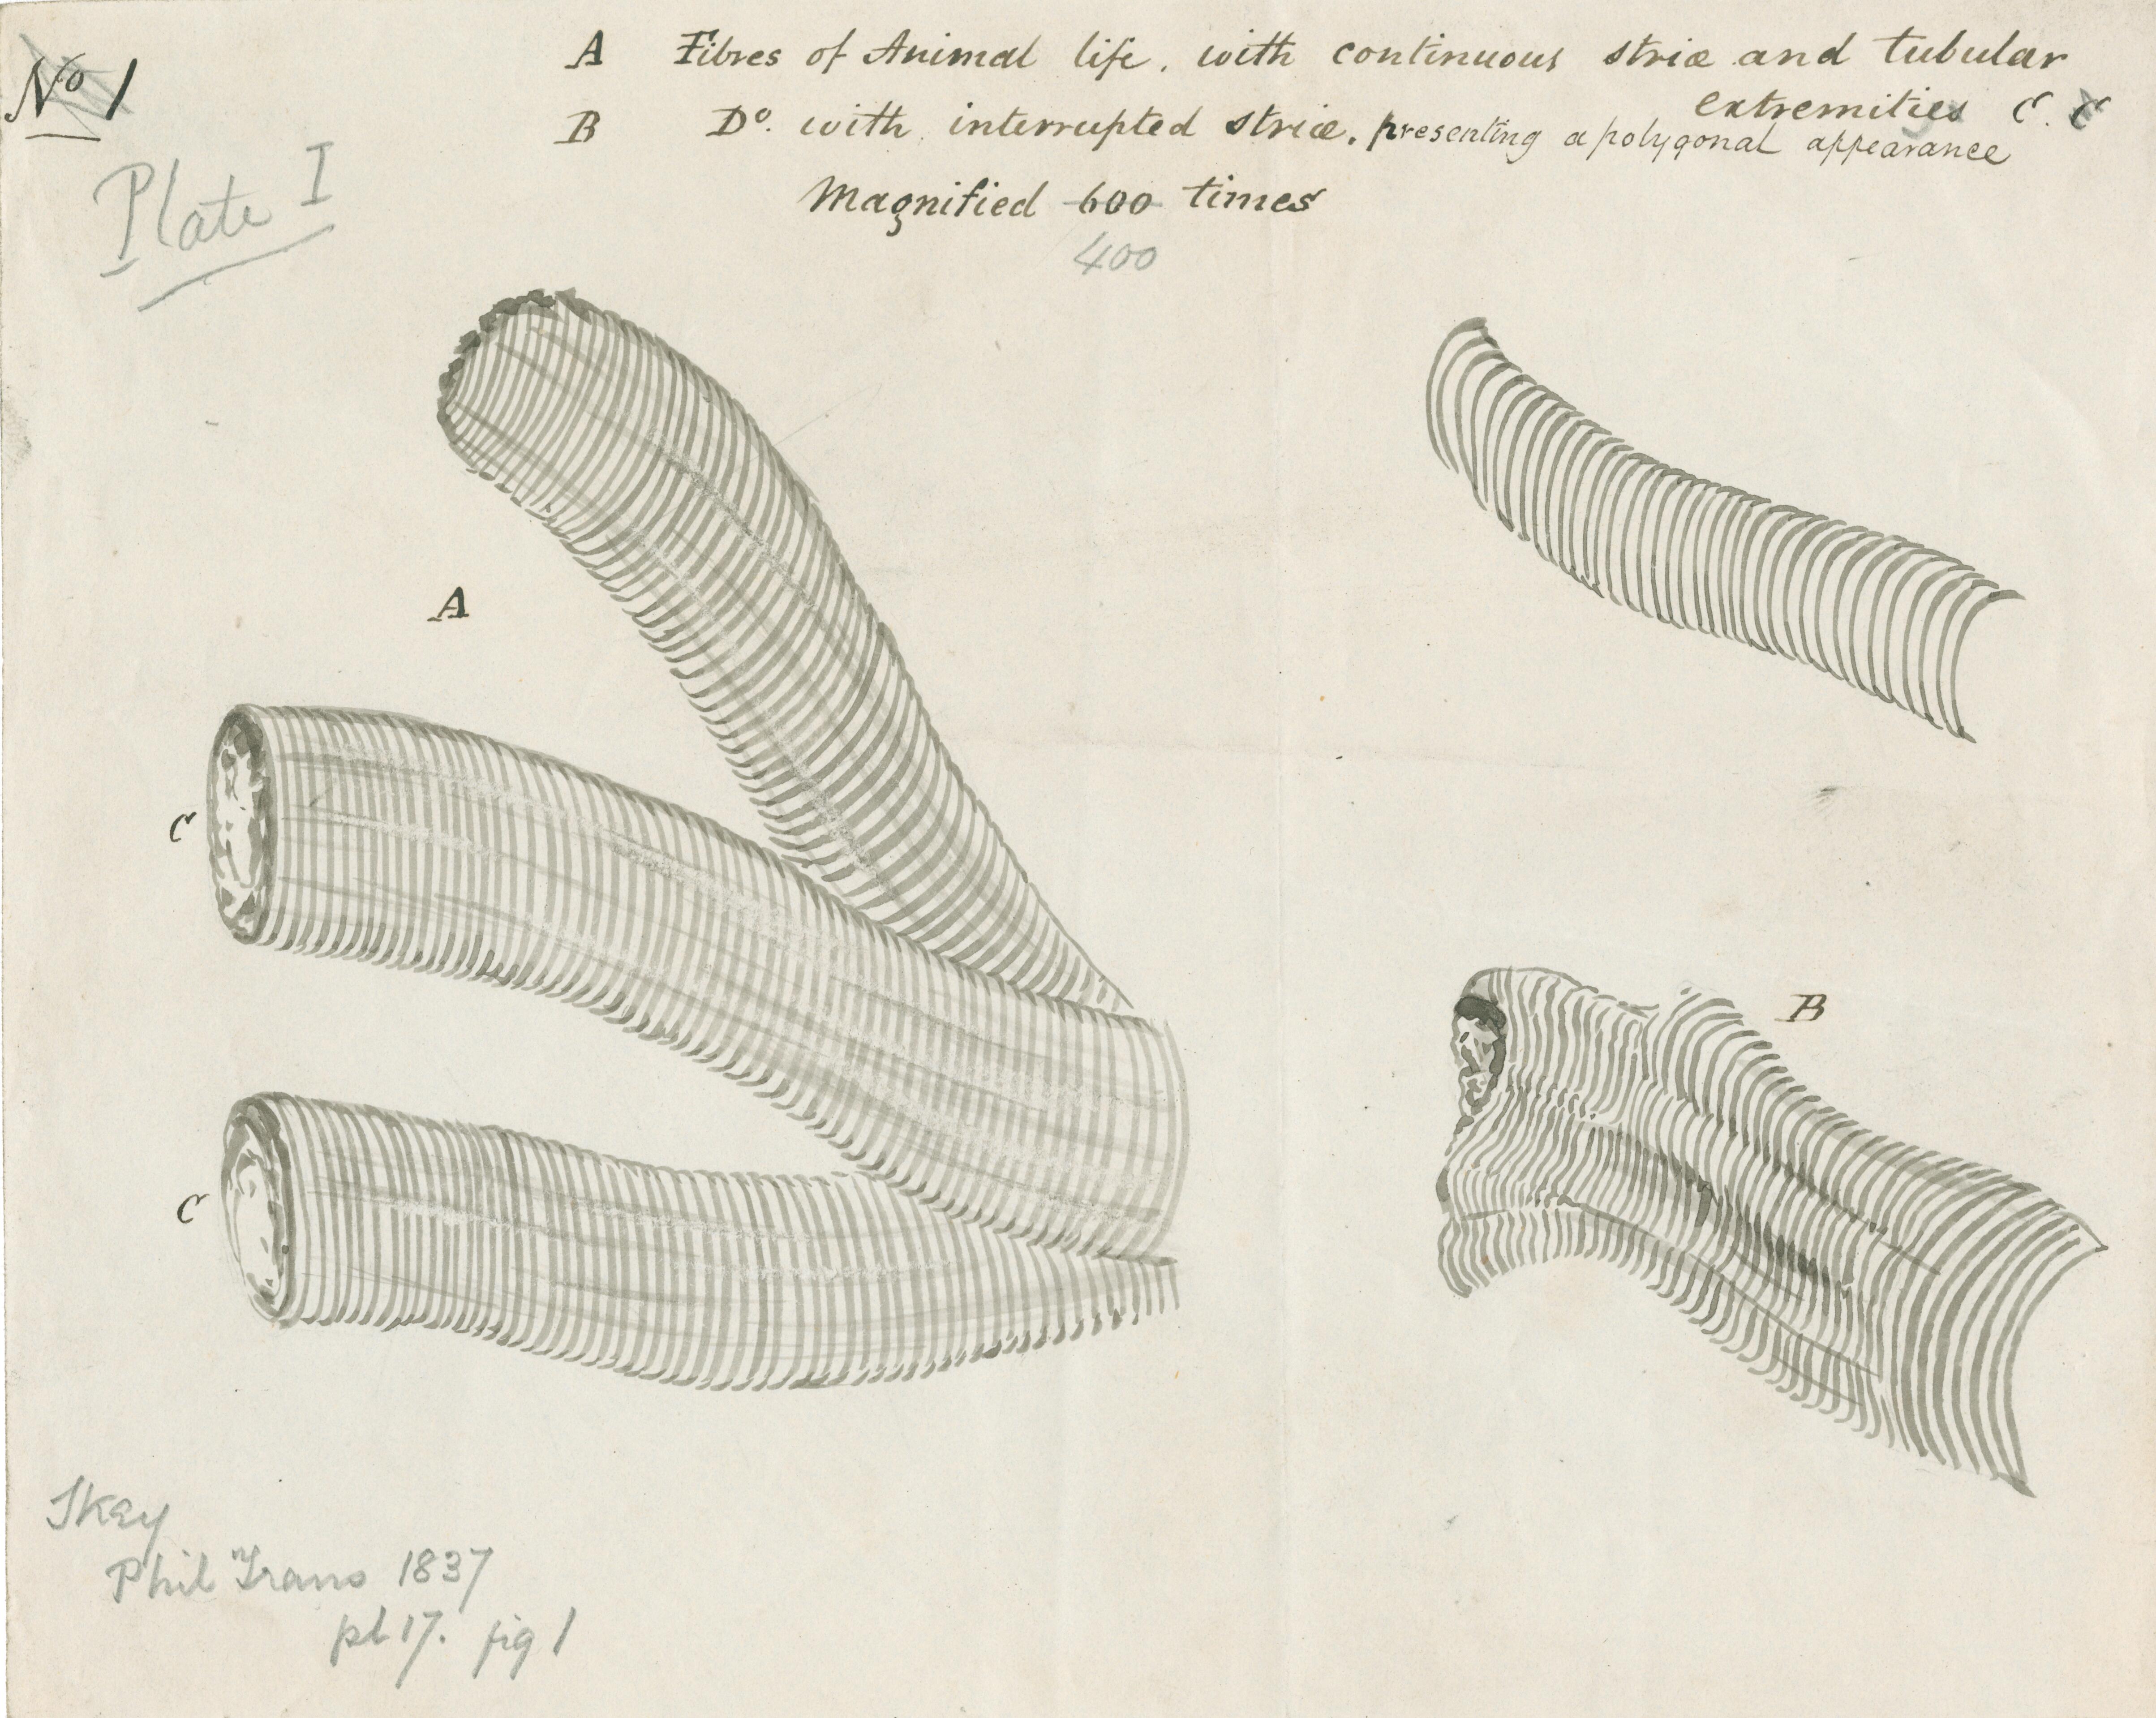 No 1
Plate I
A Fibres of Animal life. with continuous striæ and tubular
extremities C. C
B Do. with interrupted striæ. presenting a polygonal appearance
Magnified 600 times
400
A
C
C
B
Skey
Phil Trans 1837
pl 17. fig 1